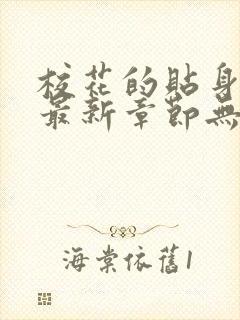 校花的貼身
最新章節無
海棠依舊1